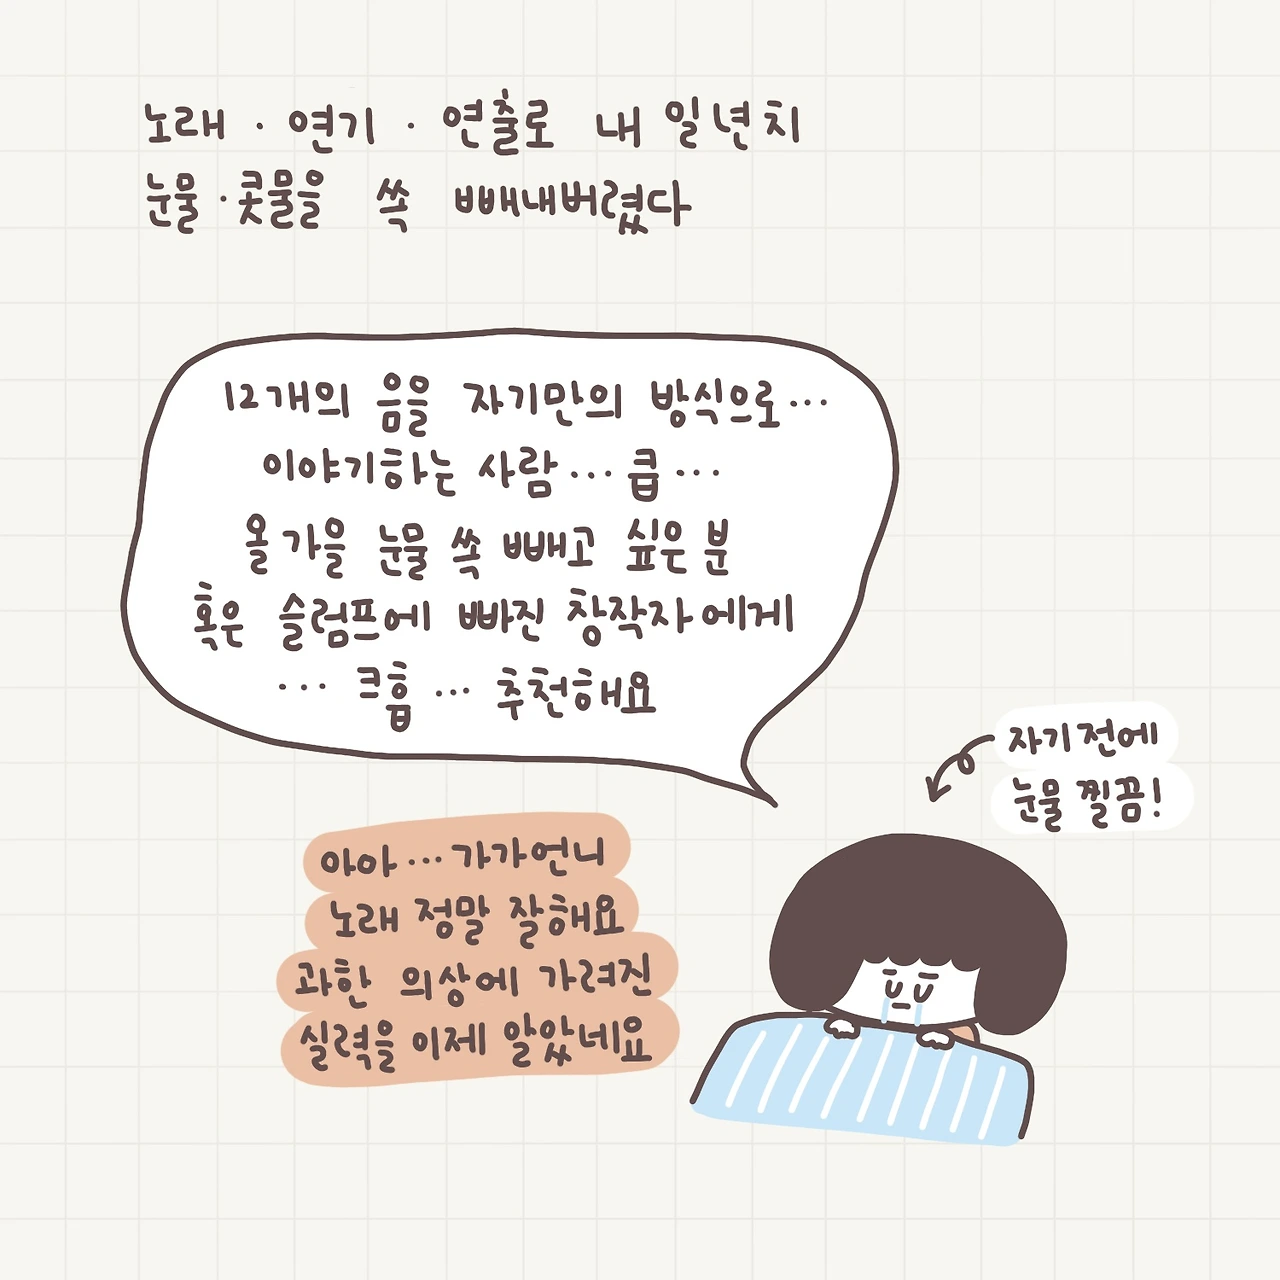 노래 · 연기 · 연출로 내 일년치
눈물 · 콧물을 쏙 빼내버렸다
12개의 음을 자기만의 방식으로···
이야기하는 사람 ··· 큽 ···
올 가을 눈물 쏙 빼고 싶은 분
혹은 슬럼프에 빠진 창작자에게
··· 크흡 ··· 추천해요
자기전에
눈물 찔끔!
아아 ··· 가가언니
노래 정말 잘해요
과한 의상에 가려진
실력을 이제 알았네요